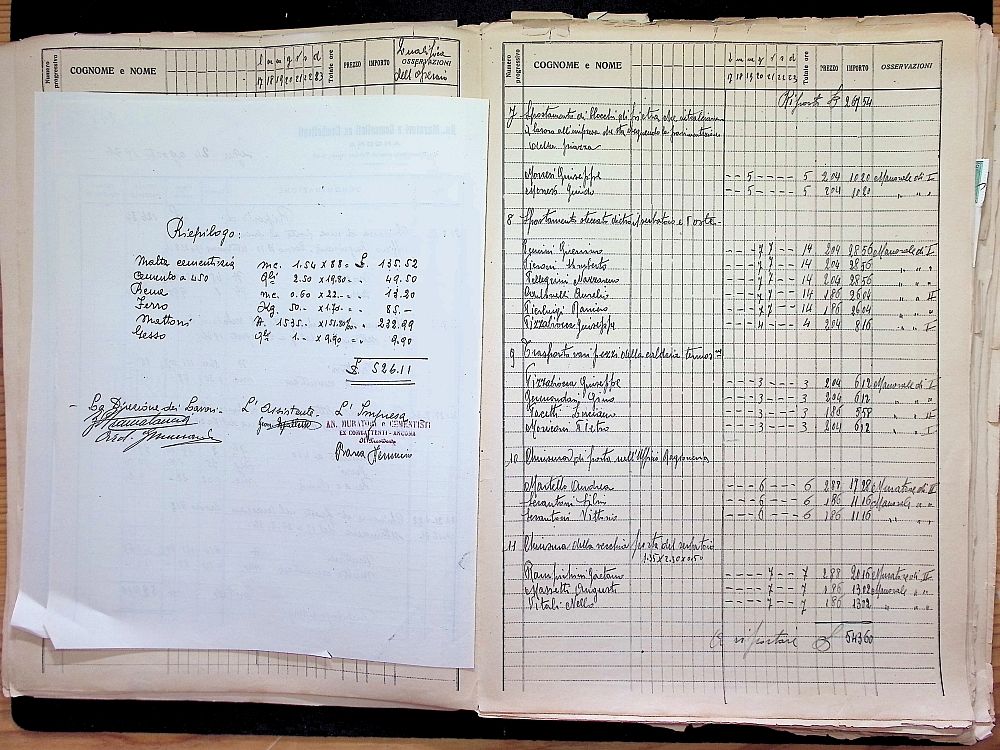 Numero progressivo COGNOME e NOME l m m g v s d Totale ore PREZZO IMPORTO Qualifica OSSERVAZIONI
17 18 19 20 21 22 23 dell'Operaio
Riepilogo:
Malta cementizia mc. 1.54 x 88.- £. 135.52
Cemento a 450 Qli 2.50 x 19.80 = . 49.50
Rena mc. 0.60 x 22.- = . 13.20
Ferro Kg. 50.- x 1.70.- = . 85.-
Mattoni N. 1535.- x 151.80% . 232.99
Gesso Qle 1.- x 9.90 = . 9.90
£ 526.11
La Direzione dei Lavori.- L'Assistente.- L'Impresa
AN. MURATORI e CEMENTISTI
EX COMBATTENTI - ANCONA
Il Presidente
Numero progressivo COGNOME e NOME l m m g v s d Totale ore PREZZO IMPORTO OSSERVAZIONI
17 18 19 20 21 22 23
Riporto £ 26954
7 Spostamento di blocchi di pietra che intralciavano
il lavoro all'impresa che sta eseguendo la pavimentazione
della piazza
Moresi Giuseppe - - 5 - - - - 5 204 1020 Manovale di I
Monesi Guido - - 5 - - - - 5 204 1020 " "
8 Spostamento steccato dietro serbatoio e Poste.-
Guerrino - - - 7 7 - - 14 204 2856 Manovale di I
Umberto - - - 7 7 - - 14 204 2856 " " "
Pellegrini Nazzareno - - - 7 7 - - 14 204 2856 " " "
Antonelli Aurelio - - - 7 7 - - 14 186 2604 " " II
Pierluigi Raniero - - - 7 7 - - 14 186 2604 " " "
Pizzabiocca Giuseppe - - - 4 - - - 4 204 816 " " I
9 Trasporto vari pezzi della caldaia termos=
Pizzabiocca Giuseppe - - - 3 - - - 3 204 612 Manovale di I
Germondani Gino - - - 3 - - - 3 204 612 " " "
Pacetti Luciano - - - 3 - - - 3 186 558 " " II
Moriconi Pietro - - - 3 - - - 3 204 612 " " I
10 Chiusura di porta nell'Ufficio Ragioneria
Martello Andrea - - - 6 - - - 6 288 1728 Muratore di II
Serantoni Silvio - - - 6 - - - 6 186 1116 Manovale " "
Serantoni Vittorio - - - 6 - - - 6 186 1116 " " "
11 Chiusura della vecchia porta del serbatoio
1.35 x 2.30 x 0.50
Rampichini Gaetano - - - - 7 - - 7 288 2016 Muratore di II
Massetti Augusto - - - - 7 - - 7 186 1302 Manovale " "
Vitali Nello - - - - 7 - - 7 186 1302 " " "
A riportare £ 54360